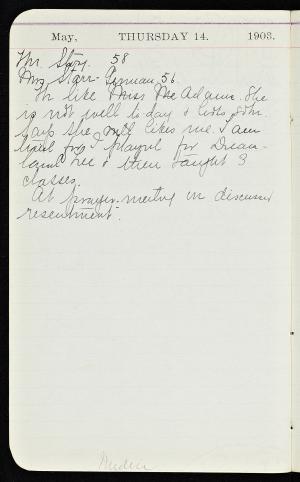 May, THURSDAY 14. 1903.
Mr. Story. 58
Mrs Starr. German 56.
like Miss McAdam. She
is not well to day &
says she will likes me. I am
tired for I played for Dream-
land Tree & then taught 3
classes.
At prayer-meeting discussed
resentment.